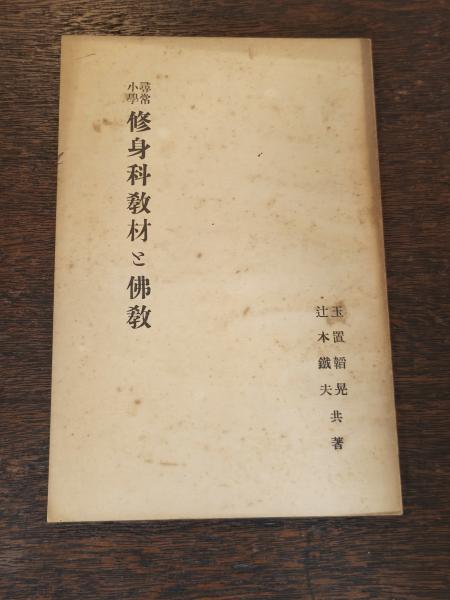 尋常
小學
修身科教材と佛教
玉置韜晃
辻本鐵夫
共著